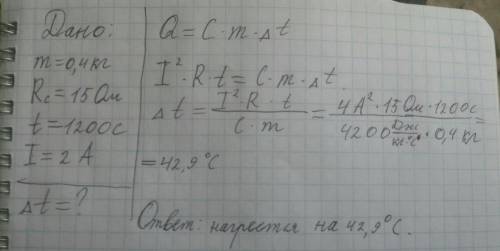 Дано:
m=0,4 кг
Rс=15 Ом
t=1200 с
I=2 А
Δt=?
Q=C·m·Δt
I²·R·t=C·m·Δt
Δt = I²·R·t / C·m = 4А²·15 Ом·1200с / 4200 Дж/кг·°C · 0,4 кг =
=42,9°C
Ответ: нагреется на 42,9°C.